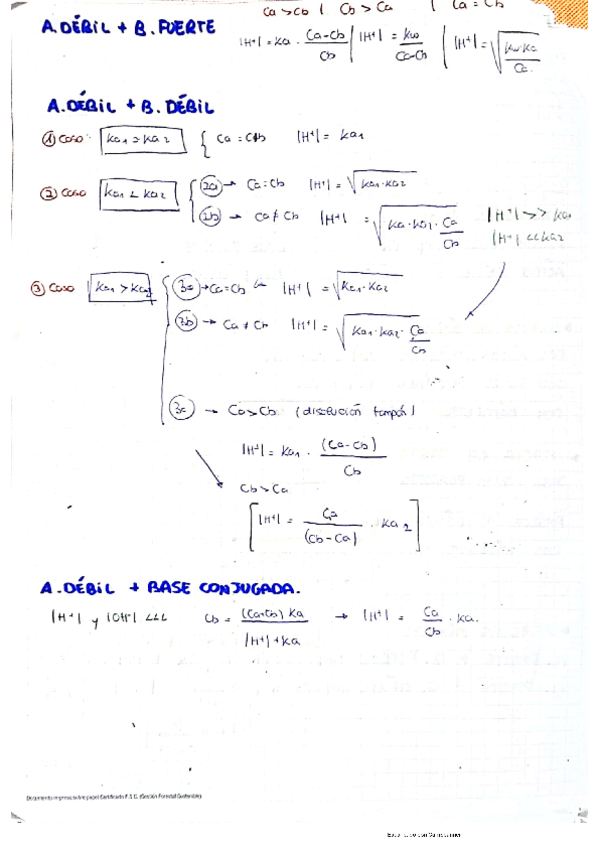 Ca>Cb | Cb>Ca | Ca=Cb
A.DÉBIL + B.FUERTE |H+|=Ka·(Ca-Cb)/Cb | |H+|=Kw/(Ca-Cb) | |H+|=√(Kw·Ka/Ca)
A.DÉBIL + B.DÉBIL
① Caso: Ka1=Ka2 { Ca=Cb |H+|=Ka1
② Caso Ka1<Ka2 { 2a → Ca=Cb |H+|=√(Ka1·Ka2)
2b → Ca≠Cb |H+| =√(Ka1·Ka2·Ca/Cb) |H+|>>Ka1
|H+|<<Ka2
③ Caso Ka1>Ka2 { 3a → Ca=Cb |H+|=√(Ka1·Ka2)
3b → Ca≠Cb |H+|=√(Ka1·Ka2·Ca/Cb)
3c → Ca>Cb (disolución tampón)
|H+|=Ka1·(Ca-Cb)/Cb
Cb>Ca
[|H+|=Ca/(Cb-Ca)·Ka2]
A.DÉBIL + BASE CONJUGADA.
|H+| y |OH-| <<< Cb=(Ca+Cb)Ka/(|H+|+Ka) → |H+|=Ca/Cb·Ka.
Documento impreso sobre papel Certificado F.S.C. (Gestión Forestal Sostenible)